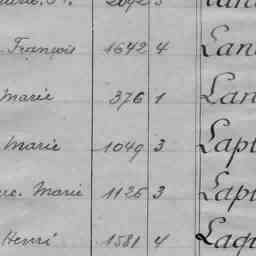 François 1642 4 Lan
Marie 376 1 Lan
Marie 1049 3 Lapt
Marie 1126 3 Lapt
Henri 1581 4 Laq